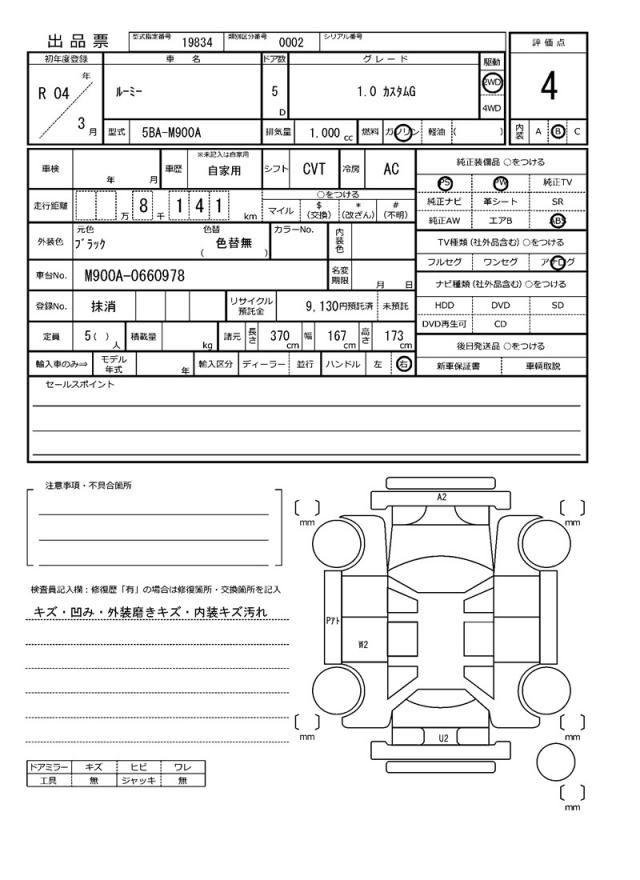 出品票 型式指定番号 19834 類別区分番号 0002 シリアル番号
評価点
初年度登録 車名 ドア数 グレード 駆動
R 04 年 ルーミー 5 D 1.0 カスタムG 2WD 4
4WD
3 月 型式 5BA-M900A 排気量 1.000 cc 燃料 ガソリン 軽油 ( ) 内装 A B C
車検 年 月 車歴 ※未記入は自家用 自家用 シフト CVT 冷房 AC 純正装備品 ○をつける
PS PW 純正TV
走行距離 万 8 千 1 4 1 km ○をつける 純正ナビ 革シート SR
マイル $(交換) *(改ざん) #(不明) 純正AW エアB ABS
外装色 元色 ブラック 色替 色替無 ( ) カラーNo. 内装色 TV種類(社外品含む) ○をつける
フルセグ ワンセグ アナログ
車台No. M900A-0660978 名変期限 月 日 ナビ種類(社外品含む) ○をつける
登録No. 抹消 リサイクル預託金 9,130円預託済 未預託 HDD DVD SD
DVD再生可 CD
定員 5( )人 積載量 kg 諸元 長さ 370 cm 幅 167 cm 高さ 173 cm 後日発送品 ○をつける
輸入車のみ⇒ モデル年式 年 輸入区分 ディーラー 並行 ハンドル 左 右 新車保証書 車輌取説
セールスポイント
注意事項・不具合箇所
A2
mm mm
検査員記入欄：修復歴「有」の場合は修復箇所・交換箇所を記入
キズ・凹み・外装磨きキズ・内装キズ汚れ
Pアト
W2
mm mm
U2
ドアミラー キズ ヒビ ワレ
工具 無 ジャッキ 無
mm